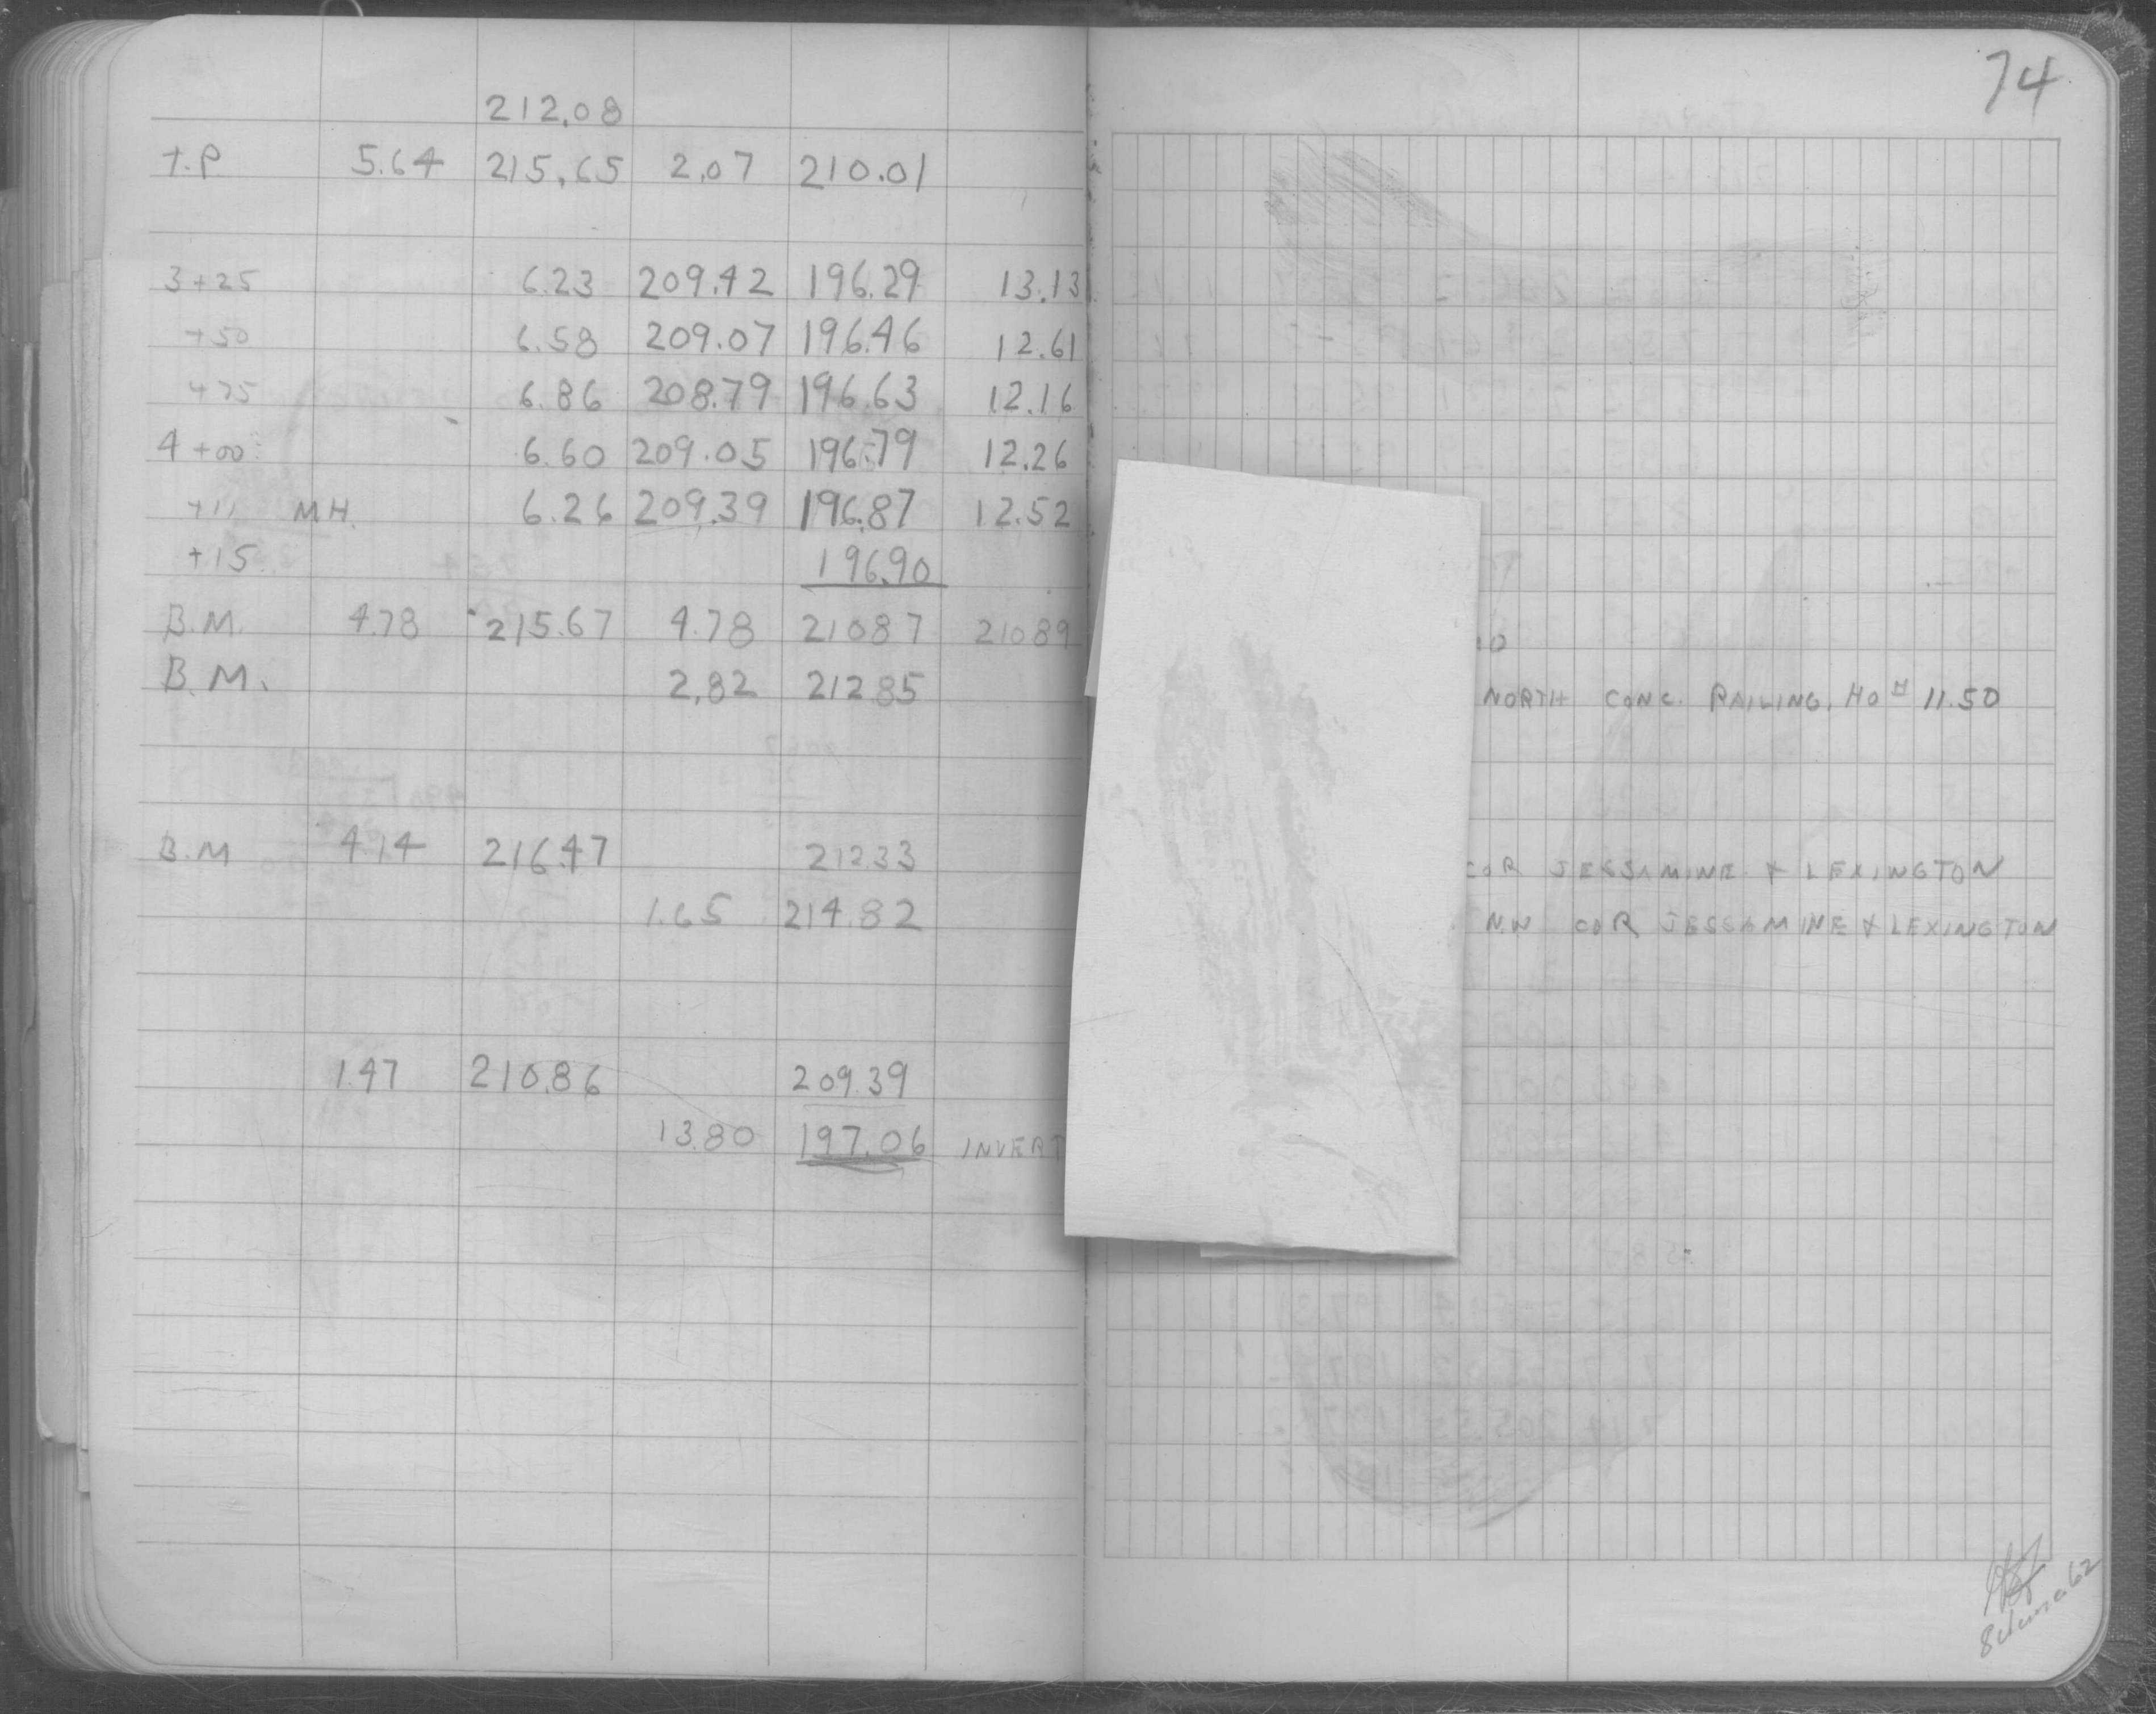 74
212.08
T.P 5.64 215.65 2.07 210.01
3+25 6.23 209.42 196.29 13.13
+50 6.58 209.07 196.46 12.61
+75 6.86 208.79 196.63 12.16
4+00 6.60 209.05 196.79 12.26
+11 M.H. 6.26 209.39 196.87 12.52
+15 196.90
B.M. 4.78 215.67 4.78 210.87 210.89
B.M. 2.82 212.85 NORTH CONC. RAILING, HO # 11.50
B.M 4.14 216.47 212.33 COR JESSAMINE & LEXINGTON
1.65 214.82 N.W COR JESSAMINE & LEXINGTON
1.47 210.86 209.39
13.80 197.06 INVERT
8 June 62